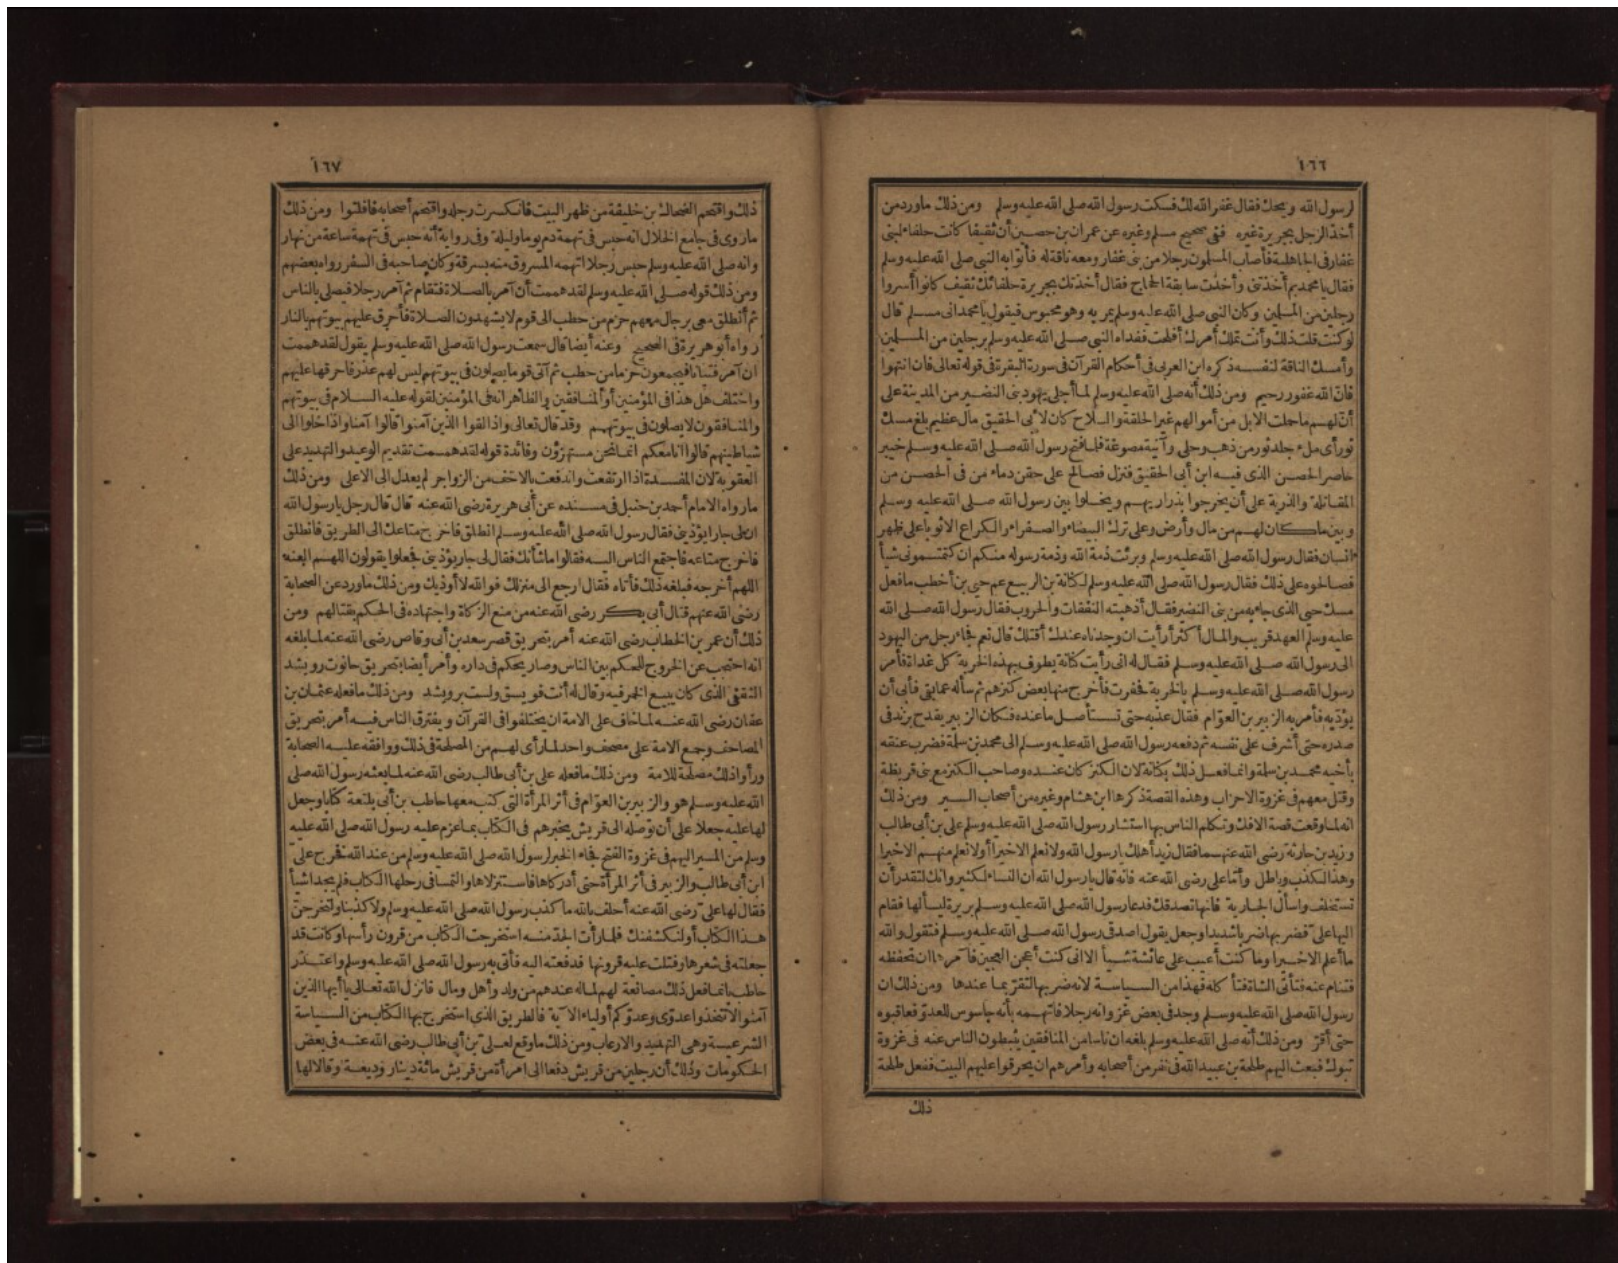 ١٦٦
لرسول الله ويحك فقال غفر الله لك فسكت رسول الله صلى الله عليه وسلم ومن ذلك ماورد من
أخذ الرجل بجريرة غيره ففى صحيح مسلم وغيره عن عمران بن حصين أن ثقيفا كانت حلفاء لبنى
غفار فى الجاهلية فأصاب المسلمون رجلا من بنى غفار ومعه ناقة له فأتوا به النبى صلى الله عليه وسلم
فقال يا محمد بم أخذتنى وأخذت سابقة الحاج فقال أخذتك بجريرة حلفائك ثقيف كانوا أسروا
رجلين من المسلمين وكان النبى صلى الله عليه وسلم يمر به وهو محبوس فيقول يا محمد انى مسلم قال
لو كنت قلت ذلك وأنت تملك أمرك أفلحت ففداه النبى صلى الله عليه وسلم برجلين من المسلمين
وأمسك الناقة لنفسه ذكره ابن العربى فى أحكام القرآن فى سورة البقرة فى قوله تعالى فان انتهوا
فان الله غفور رحيم ومن ذلك أنه صلى الله عليه وسلم لما أجلى يهود بنى النضير من المدينة على
أن لهم ما حملت الابل من أموالهم غير الحلقة والسلاح كان لابى الحقيق مال عظيم بلغ مسك
ثور أى ملء جلد ثور من ذهب وحلى وآنية مصوغة فلما فتح رسول الله صلى الله عليه وسلم خيبر
حاصر الحصن الذى فيه ابن أبى الحقيق فنزل فصالح على حقن دماء من فى الحصن من
المقاتلة والذرية على أن يخرجوا بذراريهم ويخلوا بين رسول الله صلى الله عليه وسلم
وبين ما كان لهم من مال وأرض وعلى ترك البيضاء والصفراء والكراع الا ثوبا على ظهر
انسان فقال رسول الله صلى الله عليه وسلم وبرئت ذمة الله وذمة رسوله منكم ان كتمتمونى شيأ
فصالحوه على ذلك فقال رسول الله صلى الله عليه وسلم لكنانة بن الربيع عم حيى بن أخطب ما فعل
مسك حيى الذى جاء به من بنى النضير فقال أذهبته النفقات والحروب فقال رسول الله صلى الله
عليه وسلم العهد قريب والمال أكثر أرأيت ان وجدناه عندك أقتلك قال نعم فجاء رجل من اليهود
الى رسول الله صلى الله عليه وسلم فقال له انى رأيت كنانة يطوف بهذه الخربة كل غداة فأمر
رسول الله صلى الله عليه وسلم بالخربة فحفرت فأخرج منها بعض كنزهم ثم سأله عما بقى فأبى أن
يؤديه فأمر به الزبير بن العوّام فقال عذبه حتى تستأصل ما عنده فكان الزبير يقدح بزند فى
صدره حتى أشرف على نفسه ثم دفعه رسول الله صلى الله عليه وسلم الى محمد بن مسلمة فضرب عنقه
بأخيه محمد بن مسلمة وانما فعل ذلك بكنانة لان الكنز كان عنده وصاحب الكنز مع بنى قريظة
وقتل معهم فى غزوة الاحزاب وهذه القصة ذكرها ابن هشام وغيره من أصحاب السير ومن ذلك
انه لما وقعت قصة الافك وتكلم الناس بها استشار رسول الله صلى الله عليه وسلم على بن أبى طالب
وزيد بن حارثة رضى الله عنهما فقال زيد أهلك يا رسول الله ولا نعلم الا خيرا أو لا نعلم منهم الا خيرا
وهذا الكذب وباطل وأما على رضى الله عنه فانه قال يا رسول الله ان النساء لكثير وانك لتقدر أن
تستخلف واسأل الجارية فانها تصدقك فدعا رسول الله صلى الله عليه وسلم بريرة ليسألها فقام
اليها على فضربها ضربا شديدا وجعل يقول اصدقى رسول الله صلى الله عليه وسلم فتقول والله
ما أعلم الا خيرا وما كنت أعيب على عائشة شيأ الا انى كنت أعجن العجين فآمرها ان تحفظه
فتنام عنه فتأتى الشاة فتأكله فهذا من السياسة لانه ضربها لتقر بما عندها ومن ذلك ان
رسول الله صلى الله عليه وسلم وجد فى بعض غزواته رجلا فاتهمه بأنه جاسوس للعدوّ فعاقبوه
حتى أقرّ ومن ذلك أنه صلى الله عليه وسلم بلغه ان ناسا من المنافقين يثبطون الناس عنه فى غزوة
تبوك فبعث اليهم طلحة بن عبيد الله فى نفر من أصحابه وأمرهم ان يحرقوا عليهم البيت ففعل طلحة
ذلك
١٦٧
ذلك واقتحم الضحاك بن خليفة من ظهر البيت فانكسرت رجله واقتحم أصحابه فافلتوا ومن ذلك
ما روى فى جامع الخلال انه حبس فى تهمة دم يوما وليلة وفى رواية أنه حبس فى تهمة ساعة من نهار
وانه صلى الله عليه وسلم حبس رجلا اتهمه المسروق منه بسرقة وكان صاحبه فى السفر رواه بعضهم
ومن ذلك قوله صلى الله عليه وسلم لقد هممت أن آمر بالصلاة فتقام ثم آمر رجلا فيصلى بالناس
ثم أنطلق معى برجال معهم حزم من حطب الى قوم لا يشهدون الصلاة فأحرق عليهم بيوتهم بالنار
رواه أبو هريرة فى الصحيح وعنه أيضا قال سمعت رسول الله صلى الله عليه وسلم يقول لقد هممت
ان آمر فتيانا فيجمعون حزما من حطب ثم آتى قوما يصلون فى بيوتهم ليس لهم عذر فاحرقها عليهم
واختلف هل هذا فى المؤمنين أو المنافقين والظاهر انه فى المؤمنين لقوله عليه السلام فى بيوتهم
والمنافقون لا يصلون فى بيوتهم وقد قال تعالى واذا لقوا الذين آمنوا قالوا آمنا واذا خلوا الى
شياطينهم قالوا انا معكم انما نحن مستهزؤن وفائدة قوله لقد هممت تقديم الوعيد والتهديد على
العقوبة لان المفسدة اذا ارتفعت واندفعت بالاخف من الزواجر لم يعدل الى الاعلى ومن ذلك
ما رواه الامام أحمد بن حنبل فى مسنده عن أبى هريرة رضى الله عنه قال قال رجل يا رسول الله
ان لى جارا يؤذينى فقال رسول الله صلى الله عليه وسلم انطلق فاخرج متاعك الى الطريق فانطلق
فاخرج متاعه فاجتمع الناس اليه فقالوا ما شأنك فقال لى جار يؤذينى فجعلوا يقولون اللهم العنه
اللهم أخرجه فبلغه ذلك فأتاه فقال ارجع الى منزلك فوالله لا أوذيك ومن ذلك ما ورد عن الصحابة
رضى الله عنهم قتال أبى بكر رضى الله عنه من منع الزكاة واجتهاده فى الحكم بقتالهم ومن
ذلك أن عمر بن الخطاب رضى الله عنه أمر بتحريق قصر سعد بن أبى وقاص رضى الله عنه لما بلغه
انه احتجب عن الخروج للحكم بين الناس وصار يحكم فى داره وأمر أيضا بتحريق حانوت رويشد
الثقفى الذى كان يبيع الخمر فيه وقال له أنت فويسق ولست برويشد ومن ذلك ما فعله عثمان بن
عفان رضى الله عنه لما خاف على الامة ان يختلفوا فى القرآن ويفترق الناس فيه أمر بتحريق
المصاحف وجمع الامة على مصحف واحد لما رأى لهم من المصلحة فى ذلك ووافقه عليه الصحابة
ورأوا ذلك مصلحة للامة ومن ذلك ما فعله على بن أبى طالب رضى الله عنه لما بعثه رسول الله صلى
الله عليه وسلم هو والزبير بن العوّام فى أثر المرأة التى كتب معها حاطب بن أبى بلتعة كتابا وجعل
لها عليه جعلا على أن توصله الى قريش يخبرهم فى الكتاب بما عزم عليه رسول الله صلى الله عليه
وسلم من المسير اليهم فى غزوة الفتح فجاء الخبر لرسول الله صلى الله عليه وسلم من عند الله فخرج على
ابن أبى طالب والزبير فى أثر المرأة حتى أدركاها فاستنزلاها والتمسا فى رحلها الكتاب فلم يجدا شيأ
فقال لها على رضى الله عنه أحلف بالله ما كذب رسول الله صلى الله عليه وسلم ولا كذبنا ولتخرجنّ
هذا الكتاب أو لنكشفنك فلما رأت الجد منه استخرجت الكتاب من قرون رأسها وكانت قد
جعلته فى شعرها وفتلت عليه قرونها فدفعته اليه فأتى به رسول الله صلى الله عليه وسلم واعتذر
حاطب بانما فعل ذلك مصانعة لهم لما له عندهم من ولد وأهل ومال فانزل الله تعالى يا أيها الذين
آمنوا لا تتخذوا عدوّى وعدوّكم أولياء الآية فالطريق الذى استخرج بها الكتاب من السياسة
الشرعية وهى التهديد والارعاب ومن ذلك ما وقع لعلى بن أبى طالب رضى الله عنه فى بعض
الحكومات وذلك أن رجلين من قريش دفعا الى امرأة من قريش مائة دينار وديعة وقالا لها